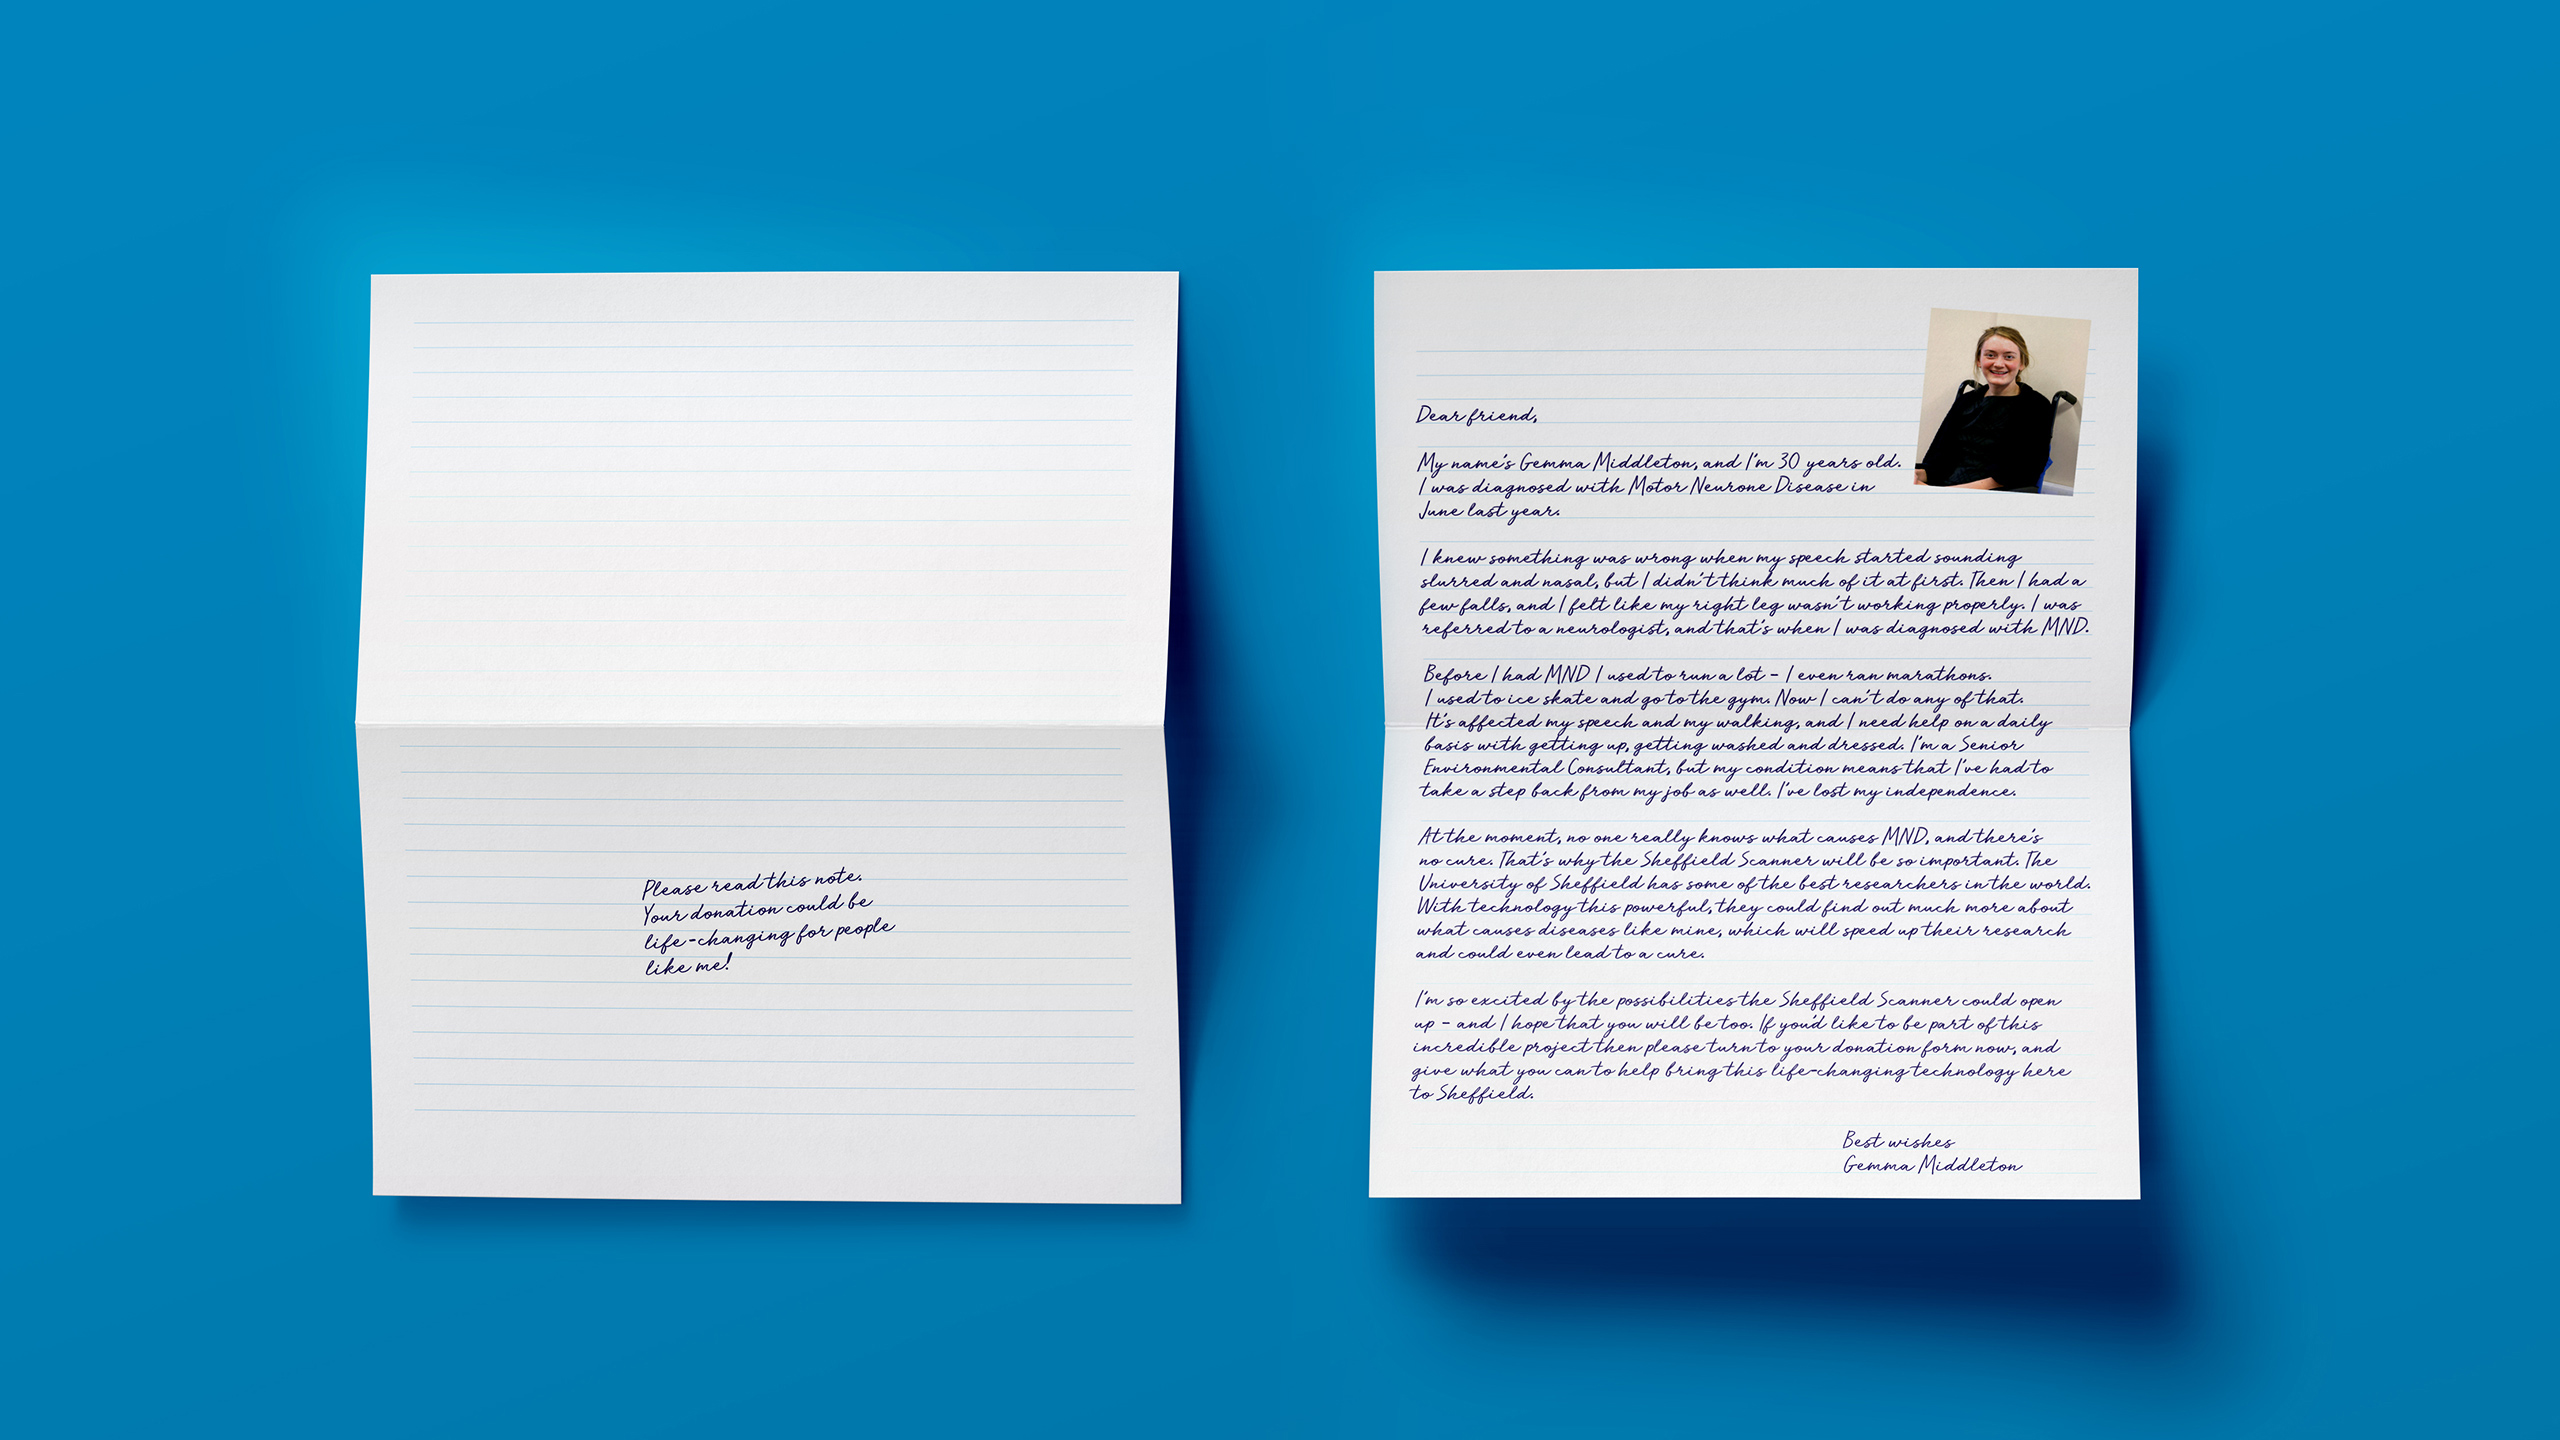 Please read this note.
Your donation could be
life-changing for people
like me!
Dear friend,
My name's Gemma Middleton, and I'm 30 years old.
I was diagnosed with Motor Neurone Disease in
June last year.
I knew something was wrong when my speech started sounding
slurred and nasal, but I didn't think much of it at first. Then I had a
few falls, and I felt like my right leg wasn't working properly. I was
referred to a neurologist, and that's when I was diagnosed with MND.
Before I had MND I used to run a lot – I even ran marathons.
I used to ice skate and go to the gym. Now I can't do any of that.
It's affected my speech and my walking, and I need help on a daily
basis with getting up, getting washed and dressed. I'm a Senior
Environmental Consultant, but my condition means that I've had to
take a step back from my job as well. I've lost my independence.
At the moment, no one really knows what causes MND, and there's
no cure. That's why the Sheffield Scanner will be so important. The
University of Sheffield has some of the best researchers in the world.
With technology this powerful, they could find out much more about
what causes diseases like mine, which will speed up their research
and could even lead to a cure.
I'm so excited by the possibilities the Sheffield Scanner could open
up – and I hope that you will be too. If you'd like to be part of this
incredible project then please turn to your donation form now, and
give what you can to help bring this life-changing technology here
to Sheffield.
Best wishes
Gemma Middleton